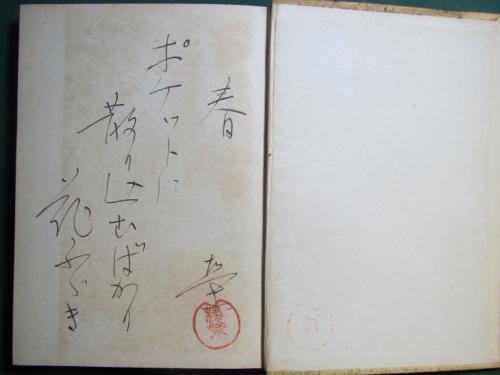 春
ポケットに
散り込むばかり
花ふゞき